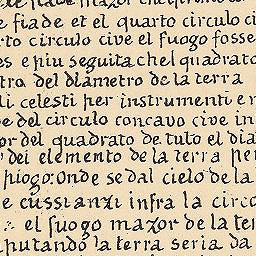 mazor che
e fiade et el quarto circulo ci
rto circulo cive el fuogo fosse
es e piu seguita chel quadrato
tro del diametro de la terra
li celesti per instrumenti e r
e del circulo concavo cive in
or del quadrato de tuto el dia
dei elemento de la terra per
piogo: onde se dal cielo de la
e cussi anzi infra la circo
el fuogo mazor de la ter
putando la terra seria da